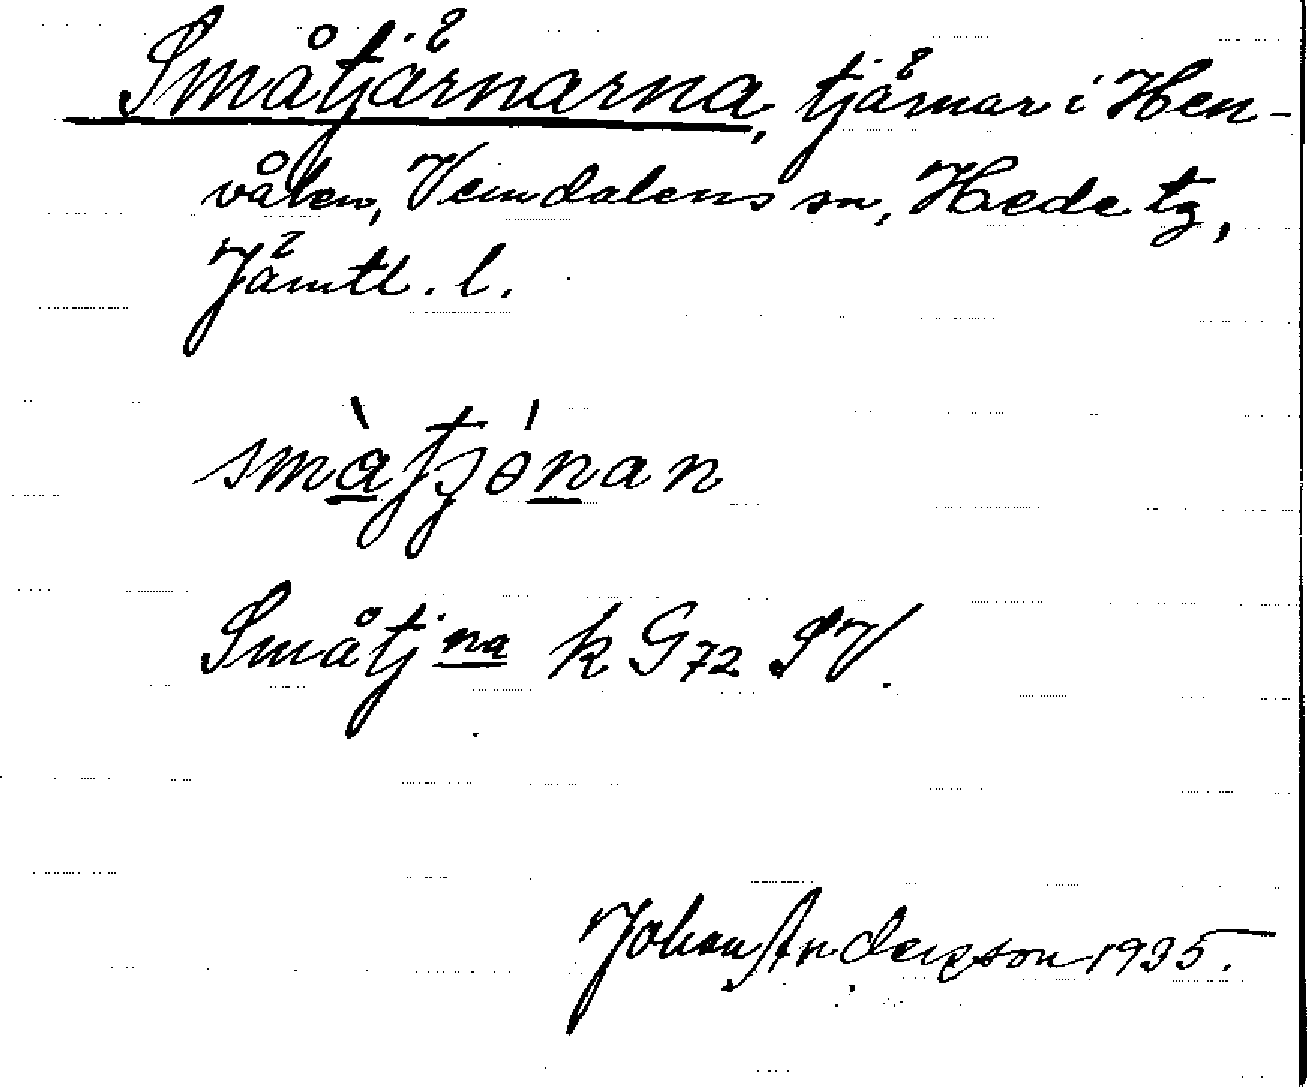 Småtjärnarna, tjärnar i Hen-
vålen, Vemdalens sn, Hede tg,
Jämtl. l.
smàtjónan
Småtjna k G72 SV.
Johan Anderson 1935.